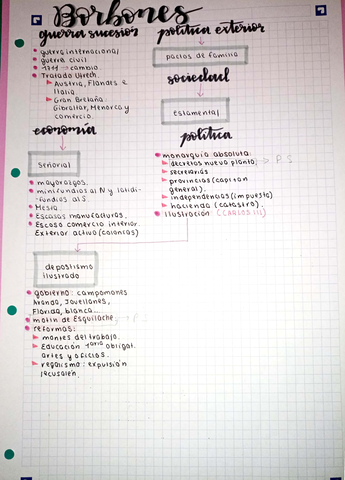 Borbones
guerra sucesion
guerra internacional
guerra civil
cambio.
Tratado Utrech.
Austria, Flandes e
Italia.
Gran Bretaña.
Gibraltar, Menorca y
comercio.
política exterior
pactos de familia
sociedad
estamental
economía
señorial
mayorazgos.
minifundios al N y latidi-
fundios al S.
Mesta.
Escasas manufacturas.
Escaso comercio interior.
Exterior activo (colonias)
política
monarquía absoluta.
decretos nueva planta. → P. I
secretarías
provincias (capitan
general).
independencias (impuesta)
hacienda (catastro).
Ilustración: (CARLOS III)
despotismo
ilustrado
gobierno: campomanes
Aranda, Jovellanos,
Florida, blanca...
motín de Esquilache.
reformas:
montes del trabajo.
Educación 1aria obligat.
artes y oficios.
regalismo: expulsión